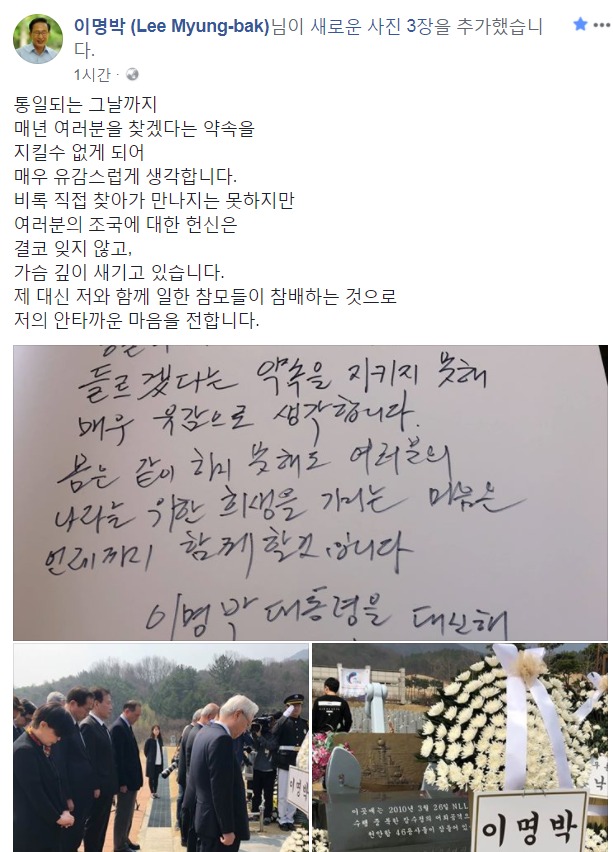 이명박 (Lee Myung-bak)님이 새로운 사진 3장을 추가했습니
다.
1시간 ·
통일되는 그날까지
매년 여러분을 찾겠다는 약속을
지킬수 없게 되어
매우 유감스럽게 생각합니다.
비록 직접 찾아가 만나지는 못하지만
여러분의 조국에 대한 헌신은
결코 잊지 않고,
가슴 깊이 새기고 있습니다.
제 대신 저와 함께 일한 참모들이 참배하는 것으로
저의 안타까운 마음을 전합니다.
들르겠다는 약속을 지키지 못해
매우 유감으로 생각합니다.
몸은 같이 하지 못해도 여러분의
나라를 위한 희생을 기리는 마음은
언제까지 함께 할것입니다
이명박 대통령을 대신해
이명박
이곳에는 2010년 3월 26일 NLL
수행 중 북한 잠수정의 어뢰공격으
천안함 46용사들이 잠들어 있
이명박
낙